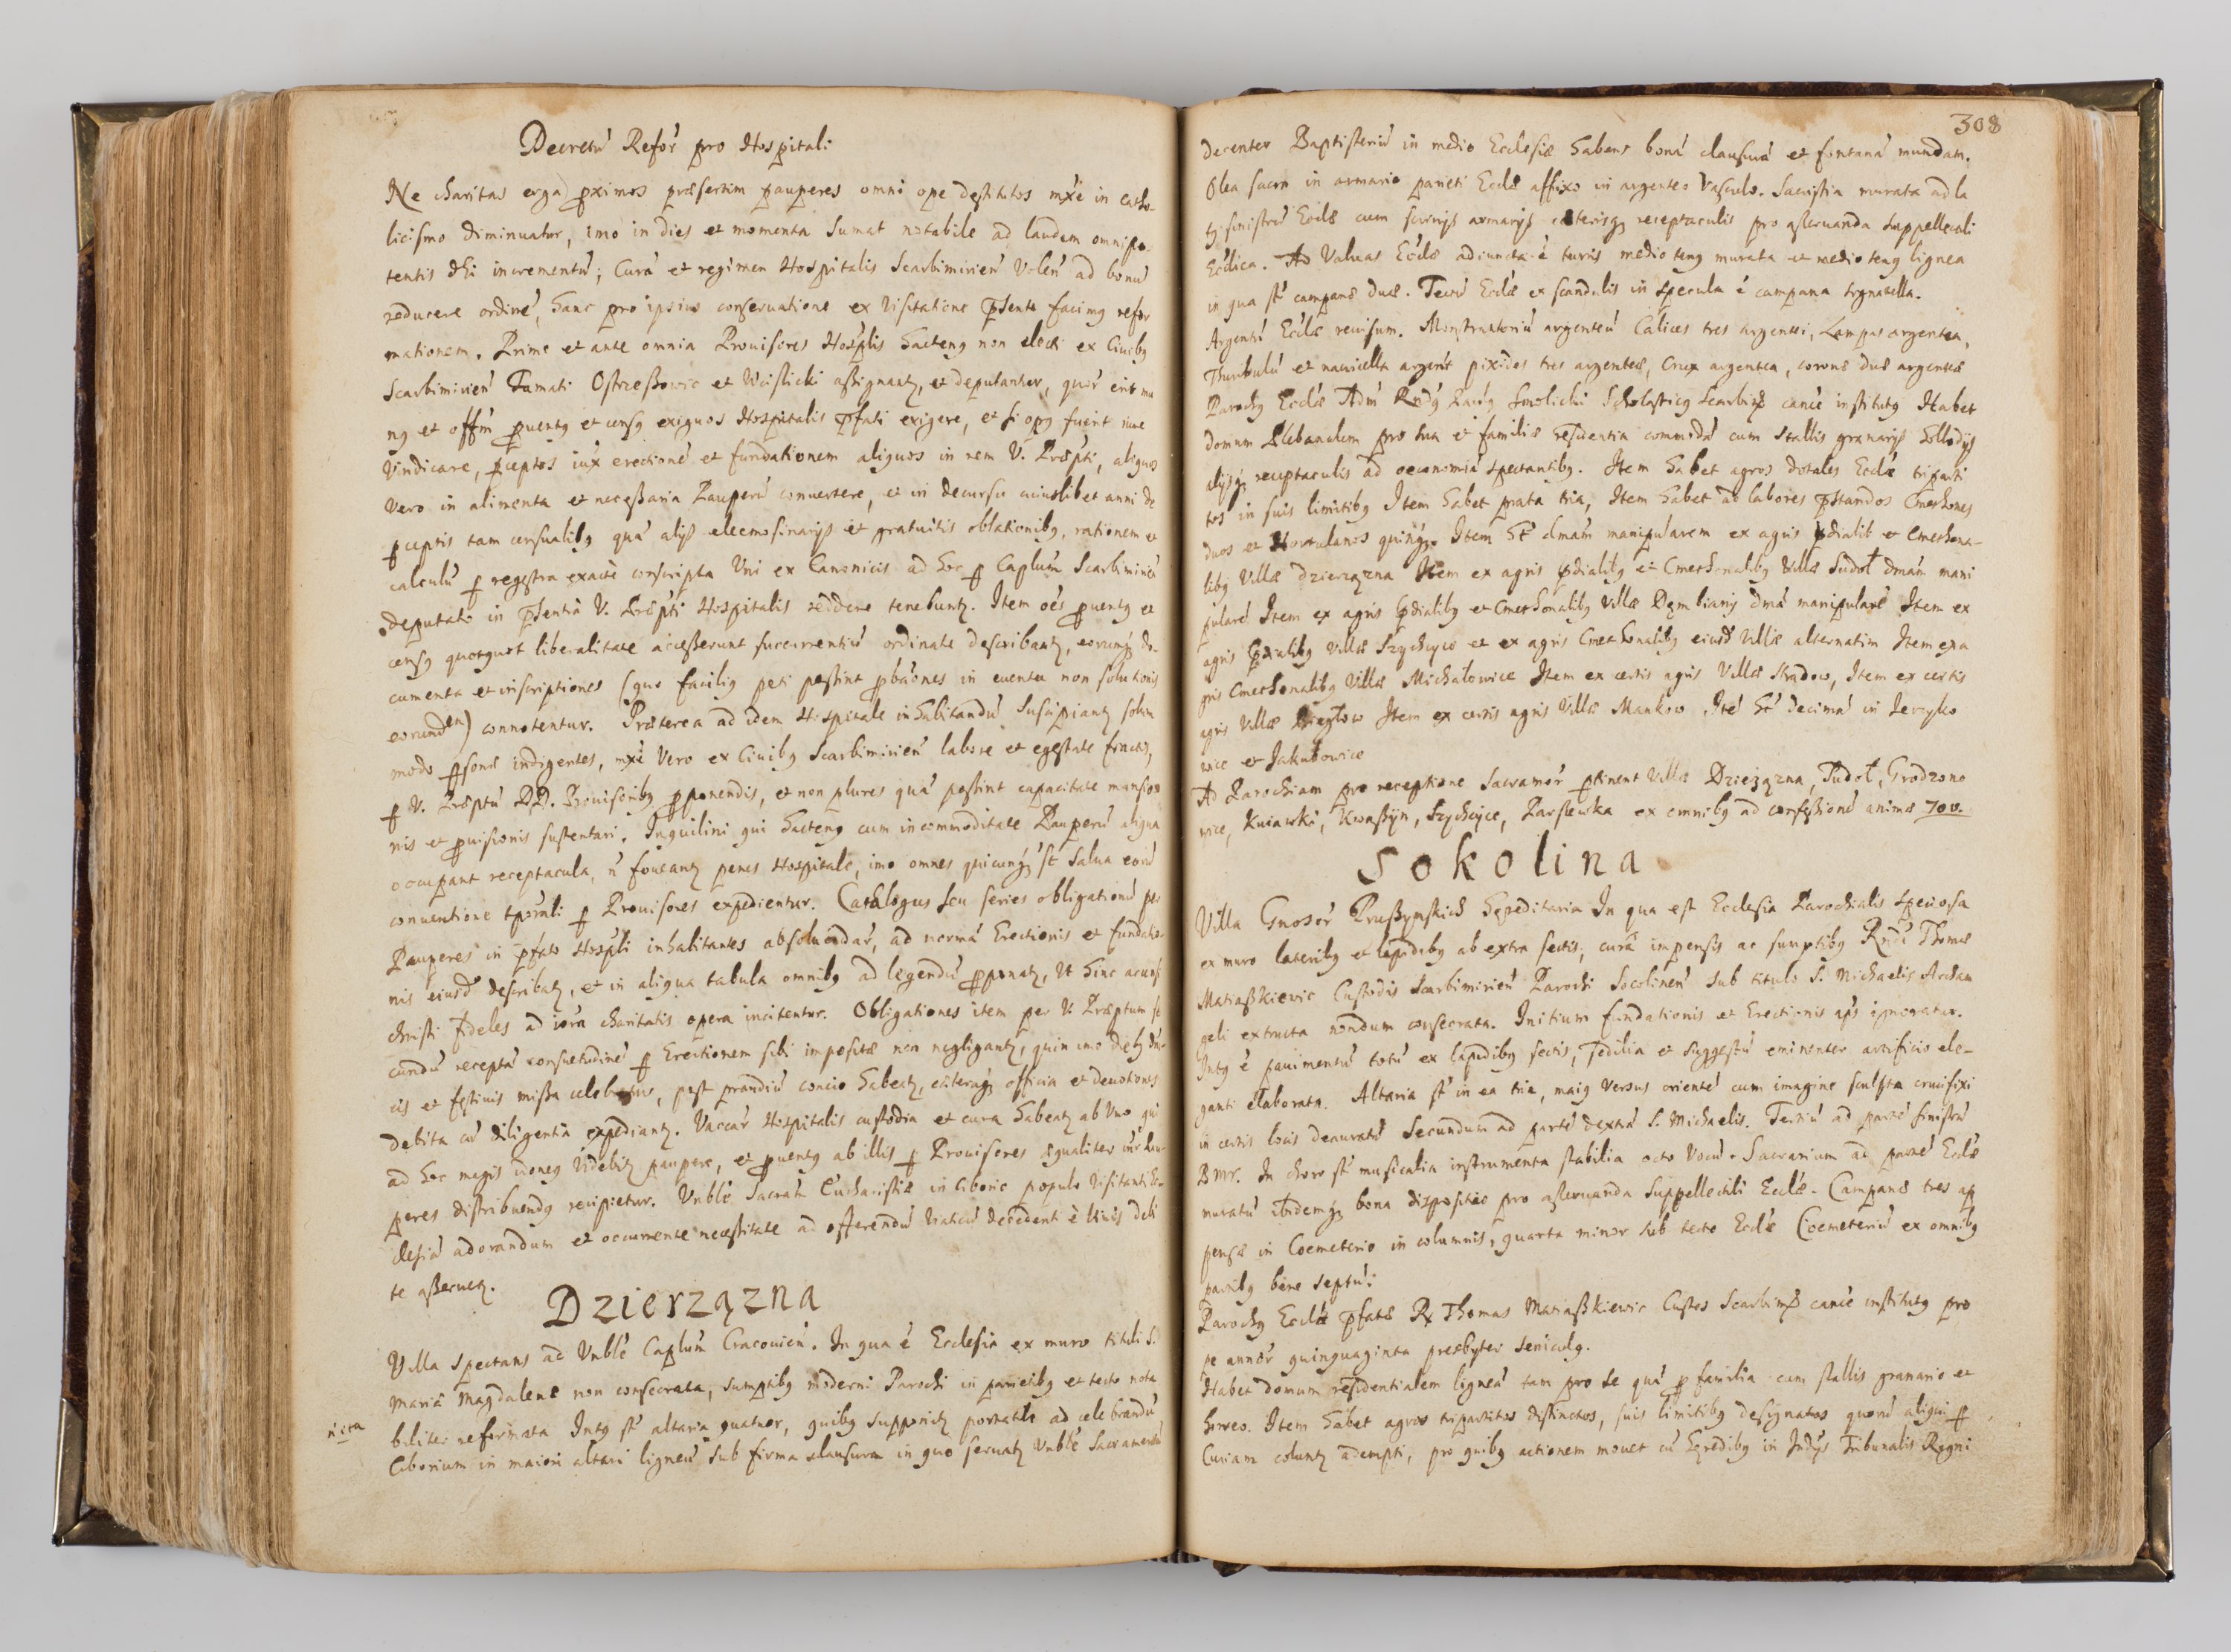 Decretũ Refor̃ pro Hospitali
Ne charitas erga proximos præsertim pauperes omni ope destitutos mx̃e in catho-
licismo diminuatur, imo in dies et momenta sumat notabile ad laudem omnipo-
tentis dei incrementũ; Curã et regimen Hospitalis Scarbimirień Volen̄ ad bonũ
reducere ordinẽ, hanc pro ipsius conseruatione ex Visitatione p̃senti facimꝰ refor
mationem. Primo et ante omnia Prouisores Hosp̃lis hactenꝰ non electi ex Ciuibꝰ
Scarbimirień Famati Ostreszowic et Wislicki assignantꝛ, et deputantur, quor̃ erit mu
nꝰ et offm̃ prouentꝰ et censꝰ exiguos Hospitalis p̃fati exigere, et si opꝰ fuerit iure
Vindicare, p̱ceptos iux̃ erectionẽ et fundationem aliquos in rem V. Præp̃ti, aliquos
Vero in alimenta et necessaria Pauperũ conuertere, et in decursu cuiuslibet anni de
p̱ceptis tam censualibꝰ quã alijs eleemosinarijs et gratuitis oblationibꝰ, rationem et
calculũ p̱ regestra exactè conscripta Vni ex Canonicis ad hoc p̱ Caplũm Scarbimirień
deputati in p̃sentia V. Præp̃ti Hospitalis reddere tenebuntꝛ. Item oẽs prouentꝰ et
censꝰ quotquot liberalitate accesserunt succurrentiũ ordinate describantꝛ, eorumqꝫ do-
cumenta et inscriptiones (quo faciliꝰ peti possint probãones in euentu non solutionis
eorundem) connotentur. Præterea ad idem Hospitale inhabitandũ suscipiantꝛ solum
modo p̱sonæ indigentes, mx̃e Vero ex Ciuibꝰ Scarbimirień labore et egestate fractos,
p̱ V. Præptũ DD. Prouisoribꝰ proponendis, et non plures quã possint capacitate mansio
nis et prouisionis sustentari. Inquilini qui hactenꝰ cum incommoditate Pauperũ aliqua
occupant receptacula, ñ foueantꝛ penes Hospitale, imo omnes quicunqꝫ st̃ salua eorũ
conuentione tporali p̱ Prouisores expedientur. Catalogus seu series obligationũ per
Pauperes in p̃fato Hosp̃li inhabitantes absoluendar̃, ad normã Erectionis et fundatio
nis eiusd̃ describatꝛ, et in aliqua tabula omnibꝰ ad legendũ proponatꝛ, Vt hinc
christi fideles ad charitatis opera incitentur. Obligationes item per V. Præptum se
cundũ receptã consuetudinẽ p̱ Erectionem sibi impositæ non negligantꝛ, quin imo diebꝰ dnĩ
cis et festiuis missa celebretur, post prandiũ concio habeatꝛ, cæteraqꝫ officia et deuotiones
debita cũ diligentia expediantꝛ. Vaccar̃ Hospitalis custodia et cura habeatꝛ ab Vno qui
ad hoc magis idoneꝰ Videbitꝛ paupere, et prouentꝰ ab illis p̱ Prouisores æqualiter
peres distribuendꝰ recipietur. Vnblẽ Sacrañ Eucharistiæ in ciborio populo Visitanti Ec-
clesiã adorandum et occurrente necessitate ad offerendũ Viaticũ decedenti è Viuis
te asseruetꝛ.
Dzierzązna
Villa spectans ad Vnblẽ Caplum Cracouień. In qua ẽ Ecclesia ex muro tituli S.
Mariæ Magdalenæ non consecrata, sumptibꝰ moderni Parochi in parietibꝰ et tecto nota
biliter reformata Intꝰ st̃ altaria quatuor, quibꝰ supponitꝛ portatile ad celebrandũ
Ciborium in maiori altari ligneũ sub firma clausura in quo seruatꝛ Vnblẽ Sacramentũ
308
decenter Baptisteriũ in medio Ecclesiæ habens bonã clausurã et fontanã mundam.
Olea sacra in armario parieti Eccl̃æ affixo in argenteo Vasculo. Sacristia murata ad la
tꝰ sinistrũ Eccl̃æ cum scrinijs armarijs cæterisqꝫ receptaculis pro asseruanda suppellectili
Eccl̃ica. Ad Valuas Eccl̃æ adiuncta ẽ turris medio tenꝰ murata et medio tenꝰ lignea
in qua st̃ campanæ duæ. Tectũ Eccl̃æ ex scandulis in specula ẽ campana sygnatella.
Argentũ Eccl̃æ reuisum. Monstratoriũ argenteũ Calices tres argentei, Lampas argentea,
Thuribulũ et nauicella argent pixides tres argenteæ, Crux argentea, coronæ duæ argenteæ
Parochꝰ Eccl̃æ Adm̃ Rñdꝰ Smolicki Scholasticꝰ Scarbim̃ cañcè institutꝰ Habet
domum Plebanalem pro sua et familiæ residentia commodã cum stallis granarijs
alijsqꝫ receptaculis ad oeconomiã spectantibꝰ. Item habet agros dotales Eccl̃æ triparti
tos in suis limitibꝰ Item habet prata tria, Item habet ad labores p̃standos Cmethones
duos et Hortulanos quinqꝫ. Item ht̃ dmãm manipularem ex agris p̃dialib et Cmethona-
libꝰ Villæ Dzierzązna Item ex agris p̃dialibꝰ et Cmethonalibꝰ Villæ Sudoł dmãm mani
pularẽ Item ex agris p̃dialibꝰ et Cmethonalibꝰ Villæ Dęmbiany dmã manipularẽ Item ex
agris p̃dialibꝰ Villæ Szyszczyce et ex agris Cmethonalibꝰ eiusd̃ Villæ alternatim Item ex a
gris Cmethonalibꝰ Villæ Michałowice Item ex certis agris Villæ Stradow, Item ex certis
agris Villæ Item ex certis agris Villæ Mankow. Itẽ ht̃ decimã in Jerzyko
wice et Jakubowice
Ad Parochiam pro receptione Sacramor̃ p̱tinent Villæ Dzierzązna, Sudoł, Grodzono
wice, Kuiawki, Kwaszyn, Szyszczyce, ex omnibꝰ ad confessionẽ animæ 700.
Sokolina
Villa Gnosor̃ Pruszynskich hæreditaria In qua est Ecclesia Parochialis speciosa
ex muro lateribꝰ et lapidibꝰ ab extra sectis, curã impensis ac sumptibꝰ Rñdi Thomæ
Matiaszkiewic Custodis Scarbimirień Parochi Socolineñ sub titulo S. Michaelis Archan
geli extructa nondum consecrata. Initium fundationis et Erectionis aps̃ ignoratur.
Intꝰ ẽ pauimentũ totũ ex lapidibꝰ sectis, sedilia et suggestũ eminenter artificio ele-
ganti elaborata. Altaria st̃ in ea tria, maiꝰ Versus orientẽ cum imagine sculpta crucifixi
in certis locis deauratũ Secundum ad partẽ dextrã S. Michaelis. Tertiũ ad partẽ sinistrã
BMV. In choro st̃ musicalia instrumenta stabilia octo Vocũ. Sacrarium ad partẽ Eccl̃æ
muratũ ibidemqꝫ bona dispositio pro asseruanda Suppellectili Eccl̃æ. Campanæ tres ap
pensæ in Coemeterio in columnis, quarta minor sub tecto Eccl̃æ Coemeteriũ ex omnibꝰ
partibꝰ bene septũ.
Parochꝰ Eccl̃æ p̃fatæ R. Thomas Matiaszkiewic Custos Scarbim̃ cañcè institutꝰ pro
pe annor̃ quinquaginta presbyter seniculꝰ.
Habet domum residentialem ligneã tam pro se quã pro familia cum stallis granario et
horreo. Item habet agros tripartitos distinctos, suis limitibꝰ designatos quorũ aliqui p̱
Curiam coluntꝛ adempti, pro quibꝰ actionem mouet cũ hæredibꝰ in Judijs Tribunalis Regni